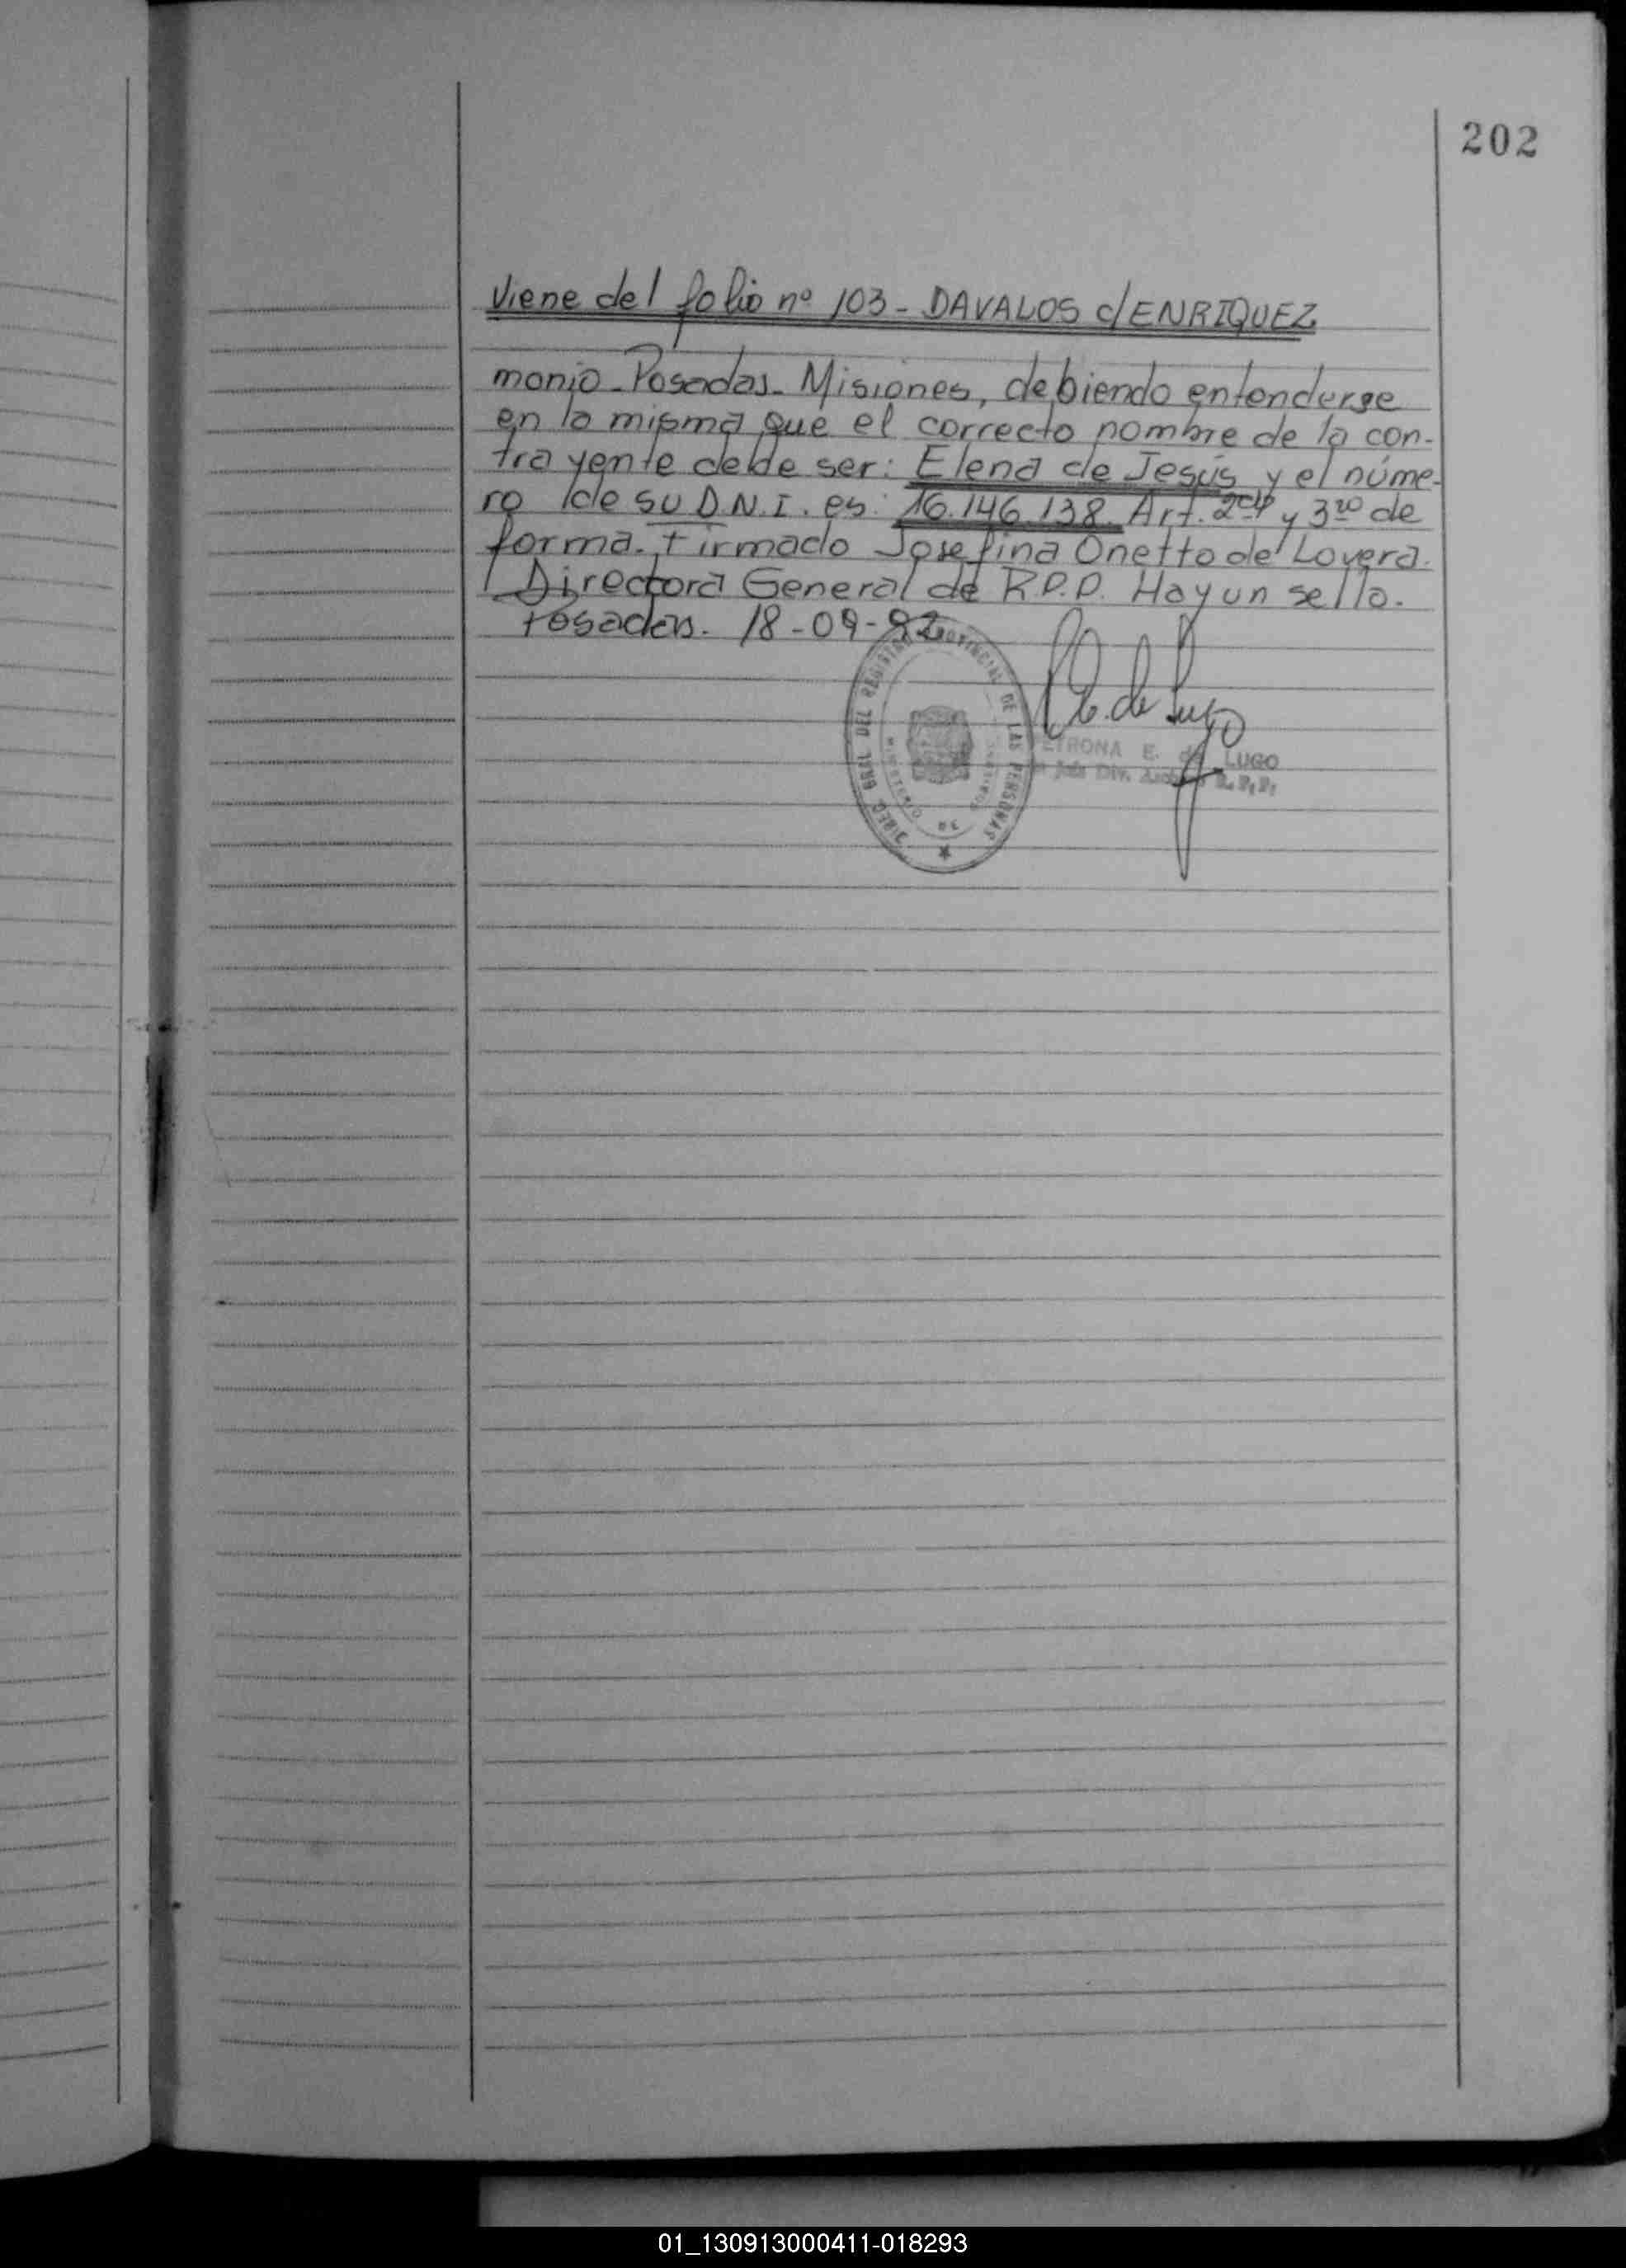 202
Viene del folio nº 103 - DAVALOS c/ ENRIQUEZ
monio - Posadas - Misiones, debiendo entenderse
en la misma que el correcto nombre de la con-
trayente debe ser: Elena de Jesús y el núme-
ro de su D.N.I. es: 16.146.138 Art. 2do y 3ro de
forma. Firmado Josefina Onetto de Lovera.
Directora General de R.P.P. Hay un sello.
Posadas. 18-09-92
DIREC. GRAL DEL REGISTRO PROVINCIAL DE LAS PERSONAS
MINISTERIO DE
de Lugo
PETRONA E. de LUGO
Jefe Div. R.P.P.
01_130913000411-018293